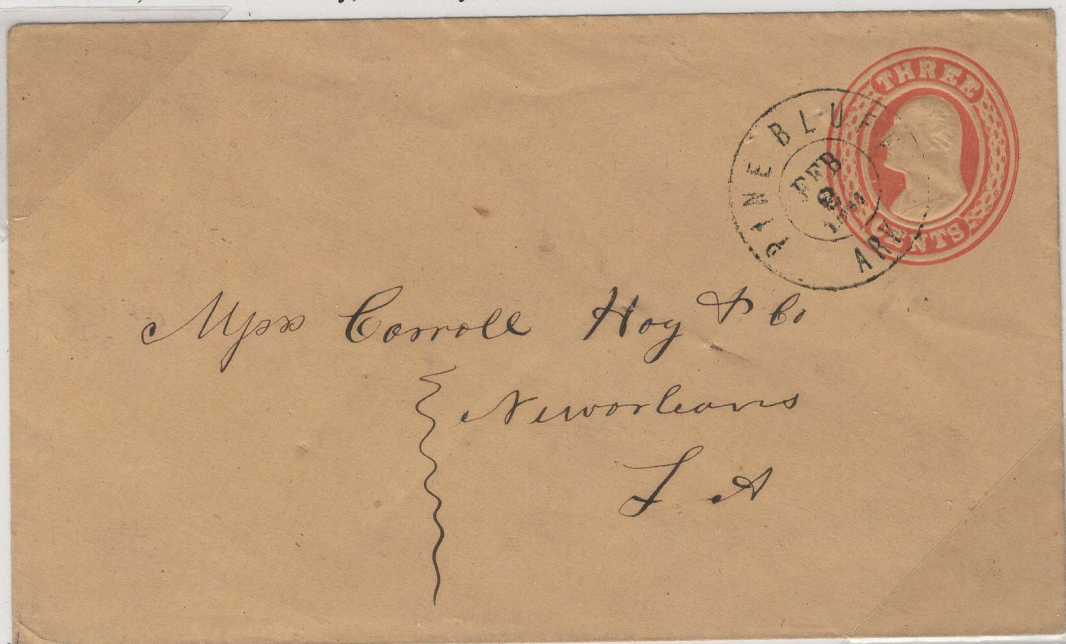 THREE
CENTS
PINE BLUF
ARK
FEB
Carroll Hoy & Co
Neworleans
LA